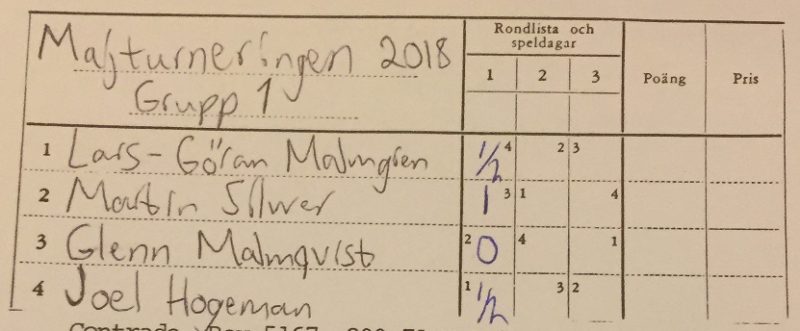 Majturneringen 2018
Grupp 1
Rondlista och
speldagar
1 2 3 Poäng Pris
1 Lars-Göran Malmgren 1/2 4 2 3
2 Martin Silwer 1 3 1 4
3 Glenn Malmqvist 2 0 4 1
4 Joel Hogeman 1 1/2 3 2